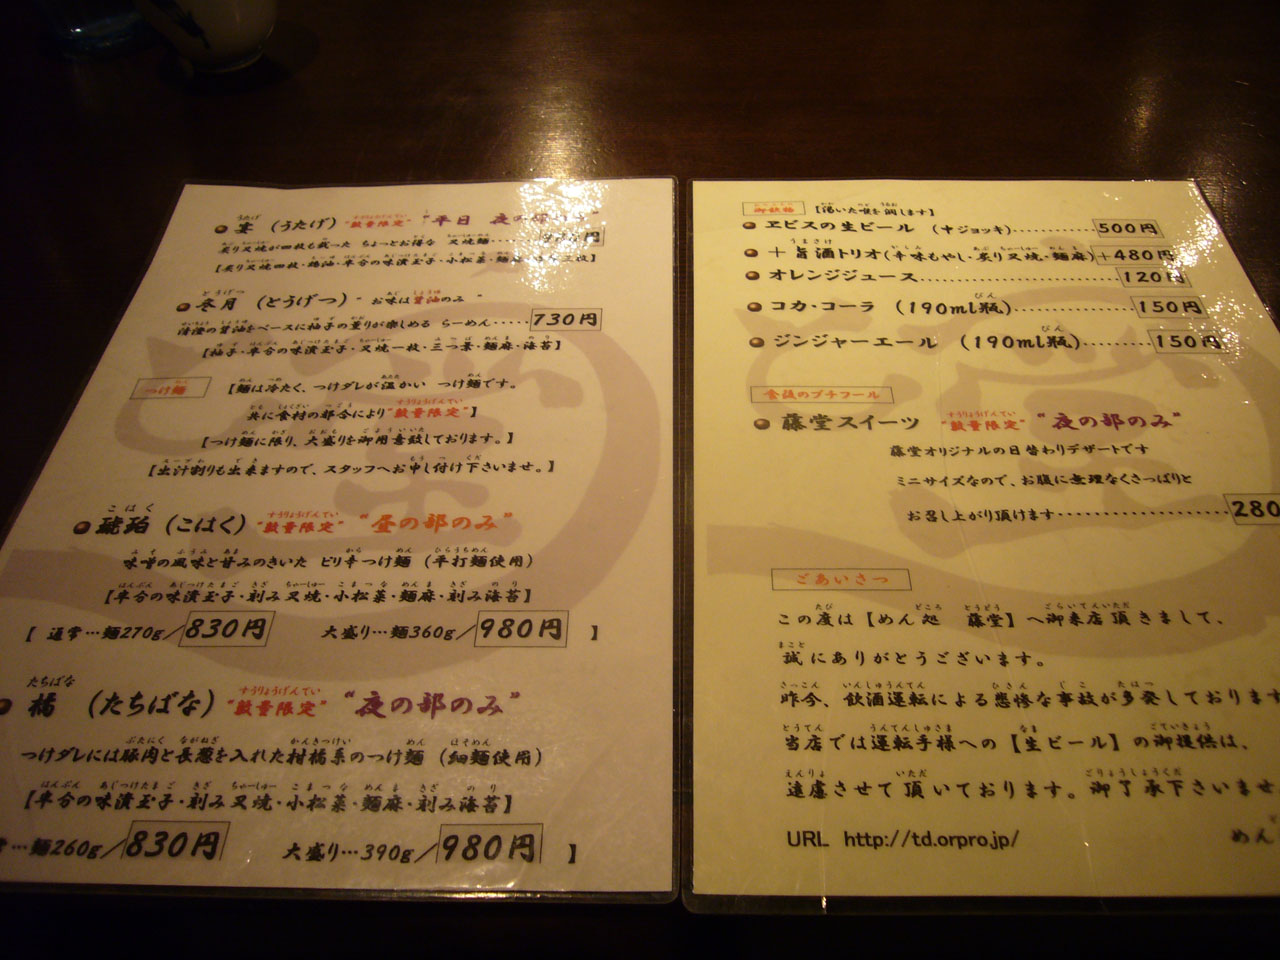 宴 (うたげ) "数量限定" "平日 夜の部のみ"
炙り叉焼が四枚も載った ちょっとお得な 叉焼麺
冬月 (とうげつ) "お味は醤油のみ"
清澄の醤油をベースに柚子の薫りが楽しめる らーめん‥‥‥730円
【柚子・半分の味漬玉子・叉焼一枚・三つ葉・麺麻・海苔】
つけ麺 【麺は冷たく、つけダレが温かい つけ麺です。
共に食材の都合により"数量限定"】
【つけ麺に限り、大盛りを御用意致しております。】
【出汁割りも出来ますので、スタッフへお申し付け下さいませ。】
琥珀 (こはく) "数量限定" "昼の部のみ"
味噌の風味と甘みのきいた ピリ辛つけ麺 (平打麺使用)
【半分の味漬玉子・刻み叉焼・小松菜・麺麻・刻み海苔】
【 通常…麺270g/830円 大盛り…麺360g/980円 】
橘 (たちばな) "数量限定" "夜の部のみ"
つけダレには豚肉と長葱を入れた柑橘系のつけ麺 (細麺使用)
【半分の味漬玉子・刻み叉焼・小松菜・麺麻・刻み海苔】
常…麺260g/830円 大盛り…390g/980円 】
御飲物 【渇いた喉を潤します】
ヱビスの生ビール (中ジョッキ)‥‥‥500円
+旨酒トリオ(辛味もやし・炙り叉焼・麺麻)+480円
オレンジジュース‥‥‥120円
コカ・コーラ (190ml瓶)‥‥‥150円
ジンジャーエール (190ml瓶)‥‥‥150円
食後のプチフール
藤堂スイーツ "数量限定" "夜の部のみ"
藤堂オリジナルの日替わりデザートです
ミニサイズなので、お腹に無理なくさっぱりと
お召し上がり頂けます‥‥‥280
ごあいさつ
この度は【めん処 藤堂】へ御来店頂きまして、
誠にありがとうございます。
昨今、飲酒運転による悲惨な事故が多発しております
当店では運転手様への【生ビール】の御提供は、
遠慮させて頂いております。御了承下さいませ
URL http://td.orpro.jp/
めん